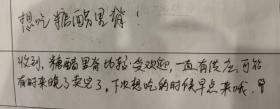 想吃糖醋里脊！
收到，糖醋里脊比较受欢迎，一直有供应，可能
有时来晚了卖完了，下次想吃的时候早点来哦。